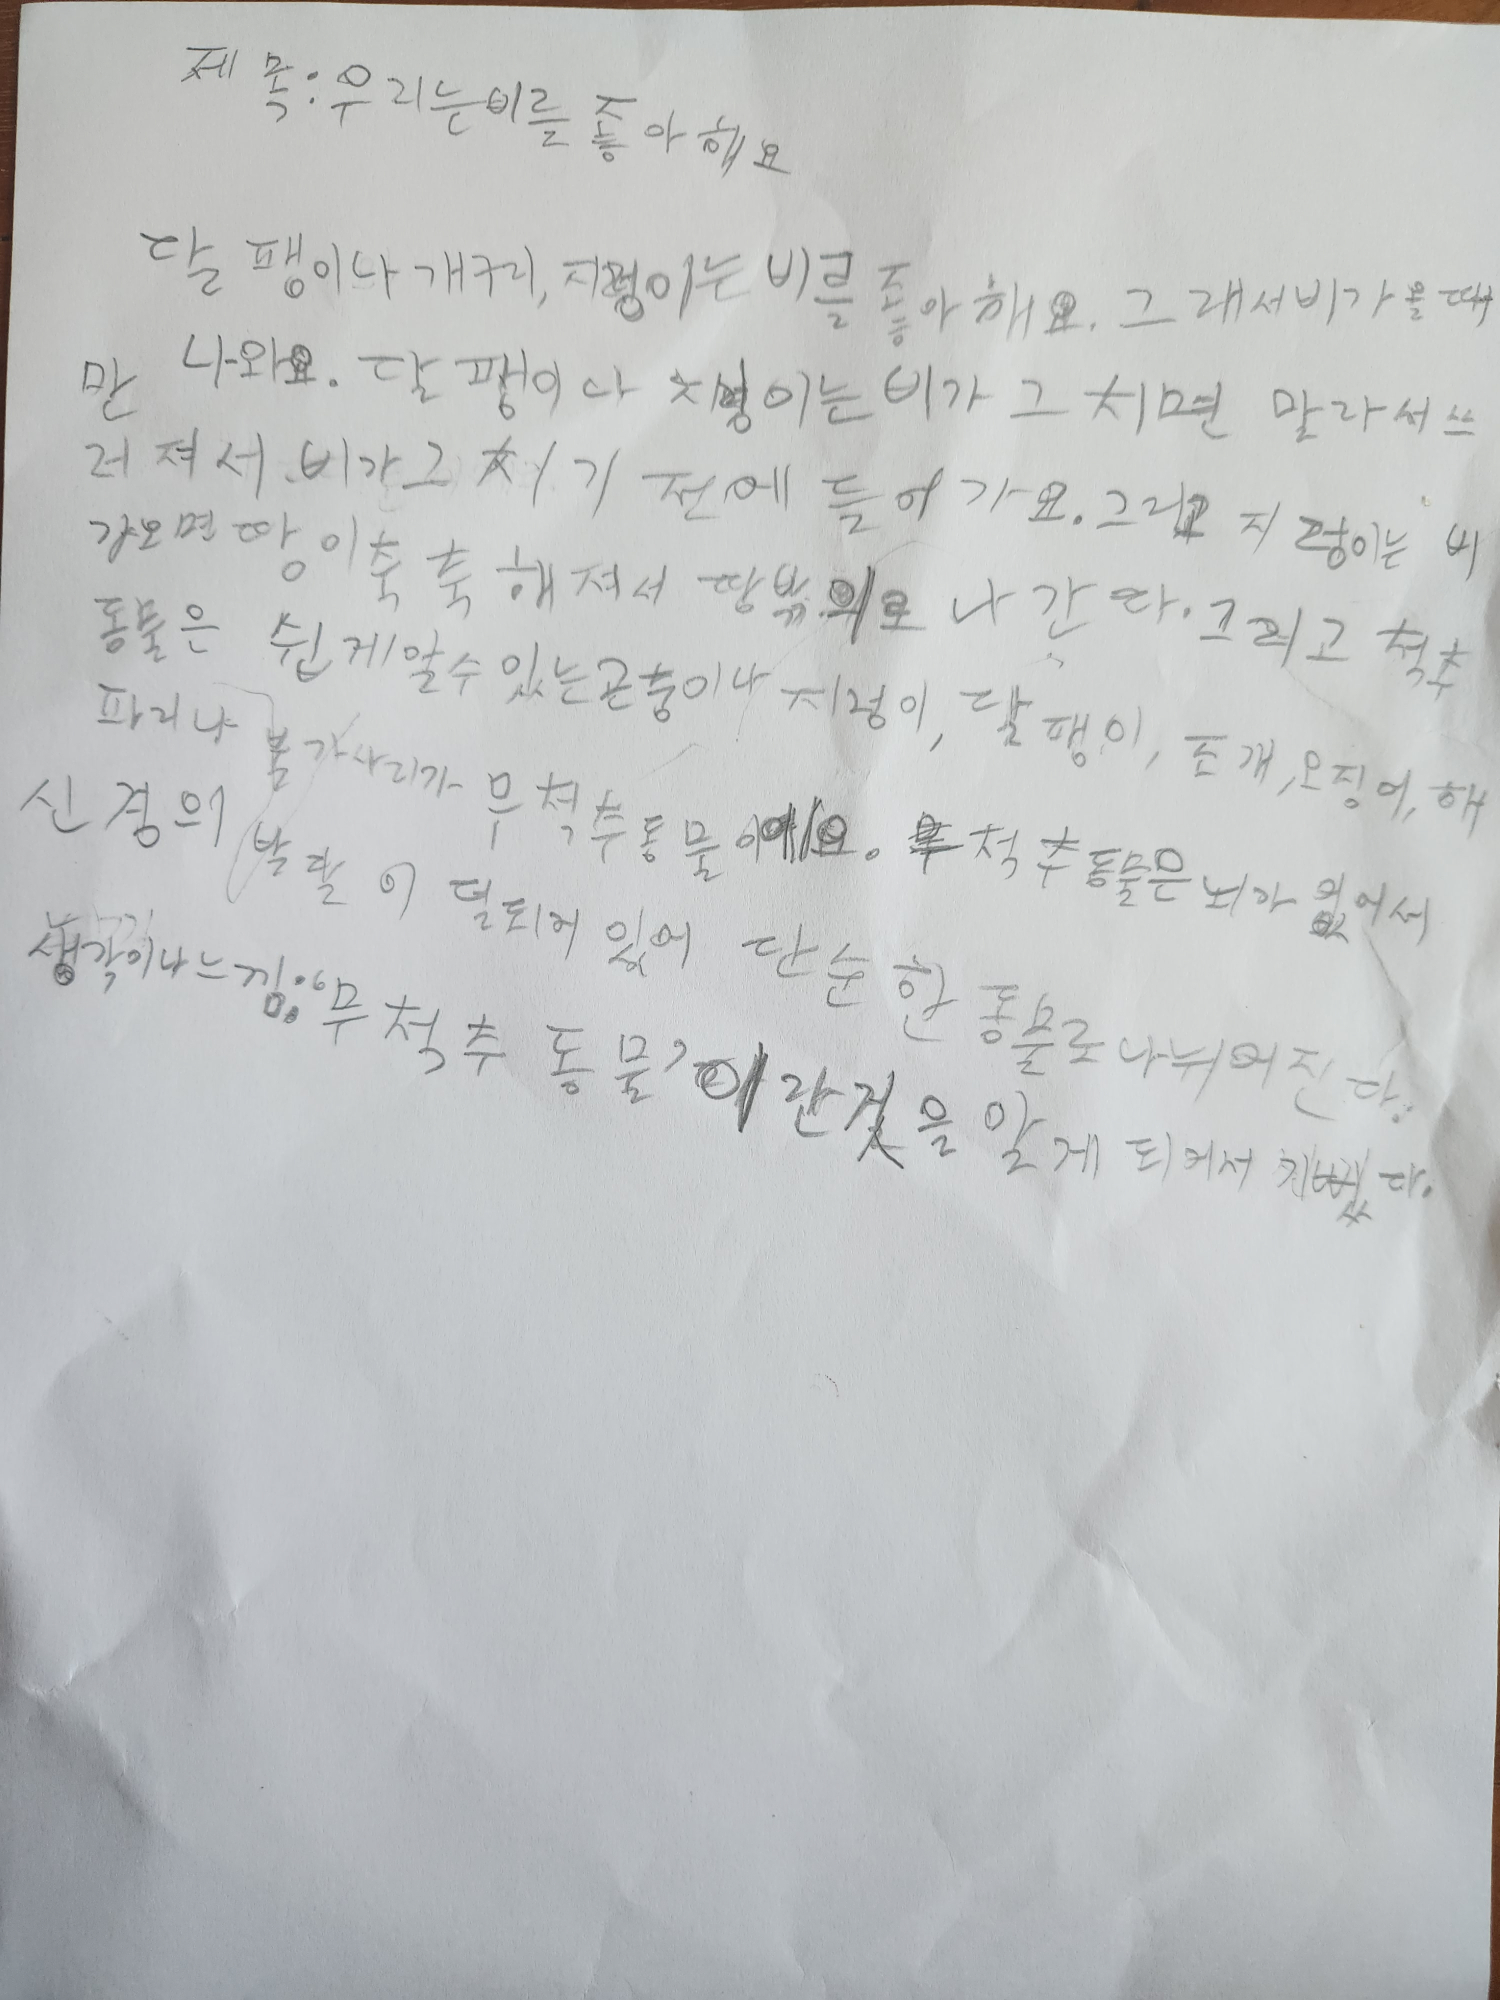 제목:우리는비를좋아해요
달팽이나개구리,지렁이는비를좋아해요. 그래서비가올때
만 나와요. 달팽이나 지렁이는비가 그치면 말라서쓰
러져서 비가그치기 전에 들어가요.그리고 지렁이는 비
가오면땅이축축해져서 땅밖의로 나간다.그리고 척추
동물은 쉽게알수있는곤충이나 지렁이, 달팽이, 조개,오징어,해
파리나 불가사리가 무척추동물이에요. 무척추동물은뇌가 없어서
신경의 발달이 덜되어 있어 단순한 동물로나뉘어진다.
생각이나느낌:'무척추 동물'이란것을 알게 되어서 기뻤다.